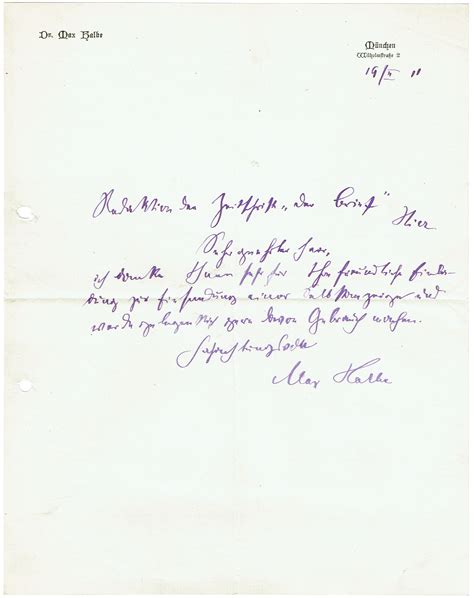 Dr. Max Halbe
München
Wilhelmstraße 2
19/V 11
Redaktion der Zeitschrift „der Brief“
Hier
Sehr geehrter Herr,
ich danke Ihnen sehr für Ihre freundliche Einla-
dung zur Einsendung einer Selbstanzeige und
werde gelegentlich gern davon Gebrauch machen.
Hochachtungsvoll
Max Halbe